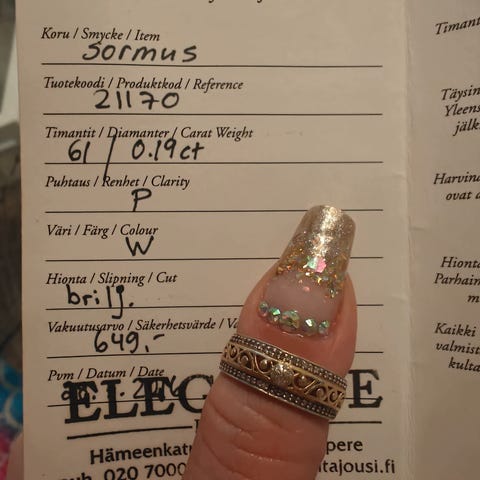 Koru / Smycke / Item
sormus
Tuotekoodi / Produktkod / Reference
21170
Timantit / Diamanter / Carat Weight
61 / 0.19ct
Puhtaus / Renhet / Clarity
P
Väri / Färg / Colour
W
Hionta / Slipning / Cut
brilj.
Vakuutusarvo / Säkerhetsvärde /
649,-
Pvm / Datum / Date
Hämeenkat
pere
puh. 020 7000
tajousi.fi
Timant
Täysin
Yleens
jälk
Harvina
ovat a
Hionta
Parhain
m
Kaikki
valmist
kulta